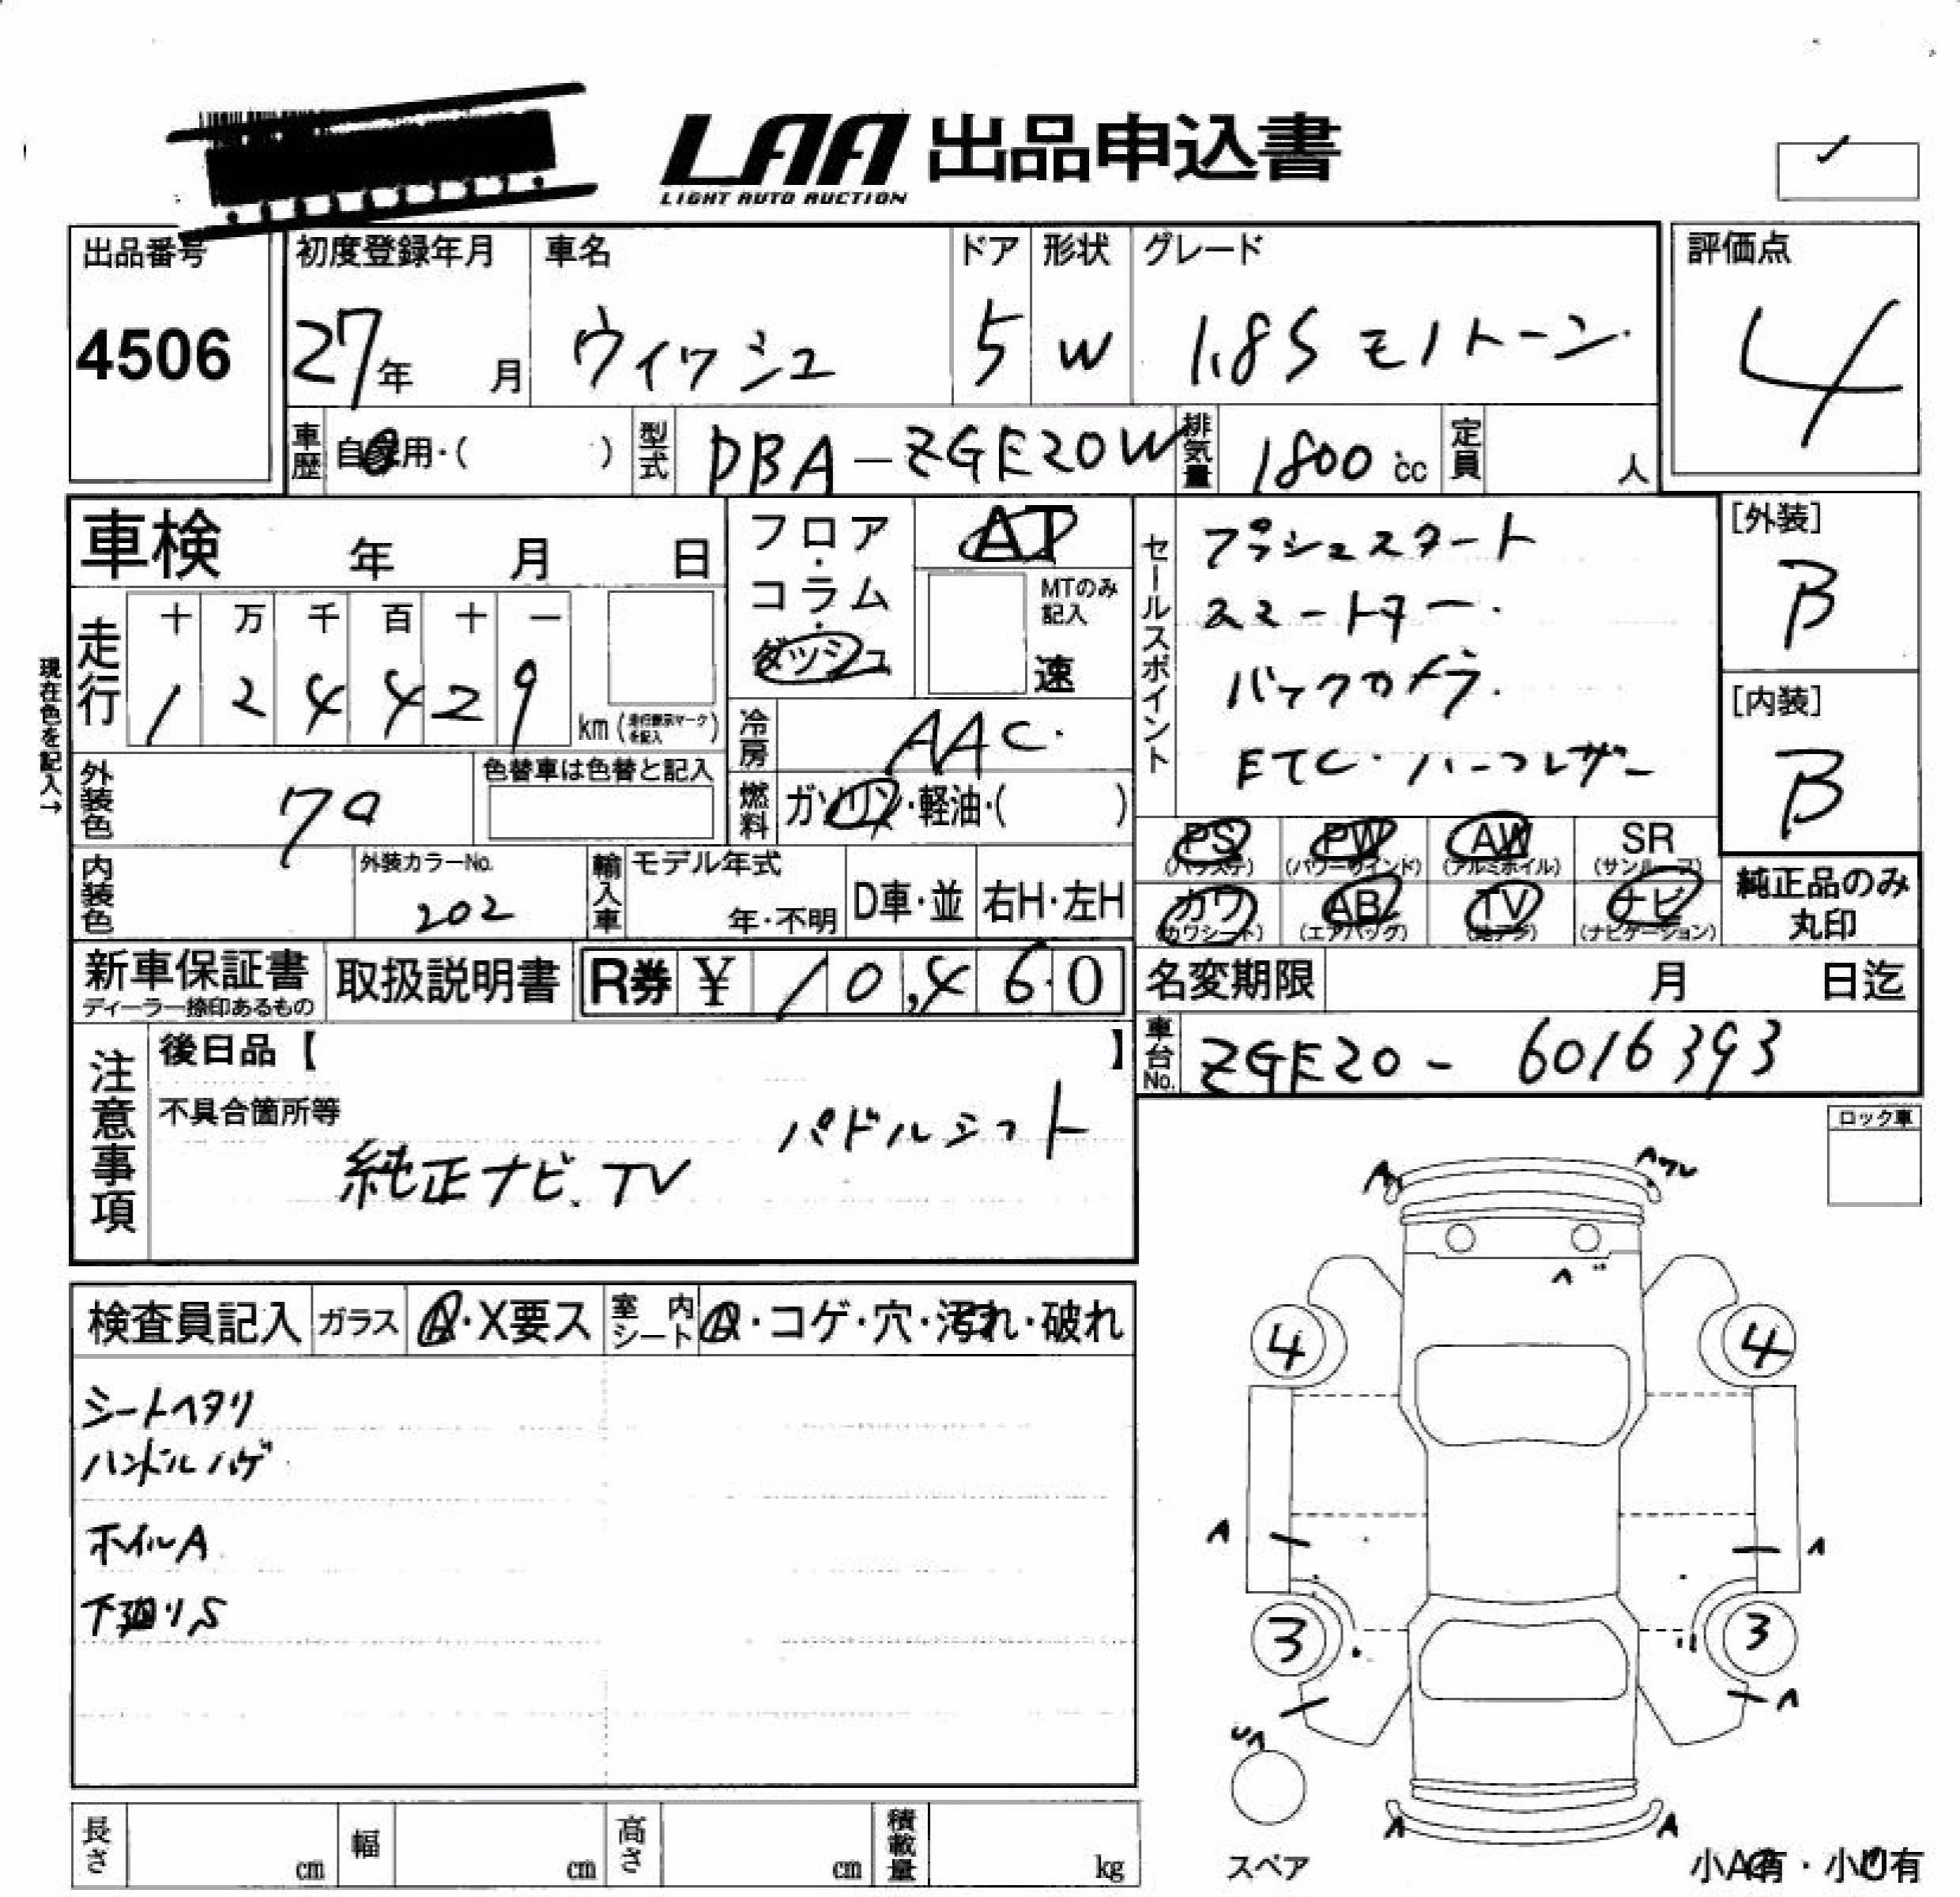 LAA 出品申込書
LIGHT AUTO AUCTION
出品番号 初度登録年月 車名 ドア 形状 グレード 評価点
4506 27年 月 ウィッシュ 5 W 1.8S モノトーン 4
車歴 自家用・( ) 型式 DBA-ZGE20W 排気量 1800cc 定員 人
車検 年 月 日
フロア・コラム・ダッシュ
AT
MTのみ記入
速
セールスポイント
プッシュスタート
スマートキー.
バックカメラ.
ETC・ハーフレザー
[外装]
B
[内装]
B
現在色を記入→
走行 十 万 千 百 十 一
1 2 4 4 2 9 km
冷房 AAC.
外装色
色替車は色替と記入
燃料 ガソリン・軽油・( )
PS PW AW SR
(パワステ) (パワーウインド) (アルミホイル) (サンルーフ)
カワ AB TV ナビ
(カワシート) (エアバッグ) (地デジ) (ナビゲーション)
純正品のみ
丸印
内装色 外装カラーNo. 202
輸入車 モデル年式 年・不明 D車・並 右H・左H
新車保証書 取扱説明書 R券 ¥ 10,460
ディーラー捺印あるもの
名変期限 月 日迄
車台No. ZGE20-6016393
注意事項
後日品【 】
不具合箇所等
パドルシフト
純正ナビ.TV
ロック車
検査員記入 ガラス A・X要ス 室内シート ・コゲ・穴・汚れ・破れ
シートヘタリ
ハンドルハゲ
ホイルA
下廻りS
A
4 4
A
3 3
スペア
A A
小A有・小U有
長さ cm 幅 cm 高さ cm 積載量 kg